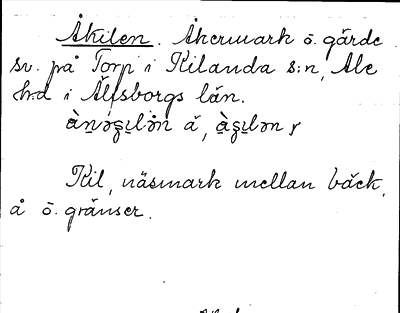 Åkilen. Åkermark ö. gärde
sv. på Torp i Kilanda s:n, Ale
h:d i Älfsborgs län.
Kil, näsmark mellan bäck,
å ö. gränser.